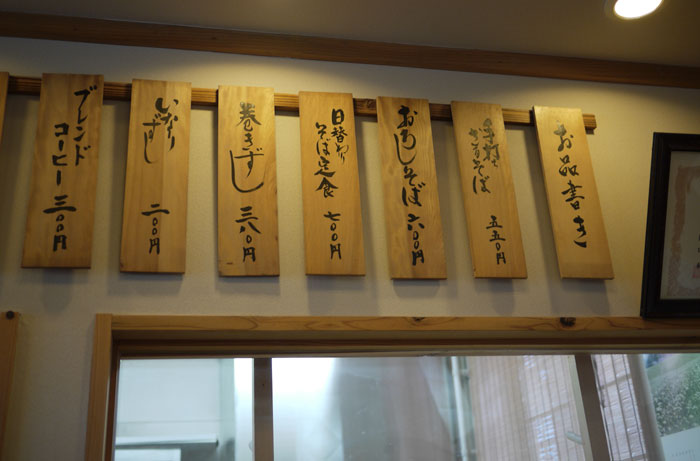 お品書き
手打ち
ざるそば
五五〇円
おろしそば 六〇〇円
日替わり
そば定食
七〇〇円
巻きずし
三八〇円
いなり
ずし
二〇〇円
ブレンド
コーヒー 三〇〇円